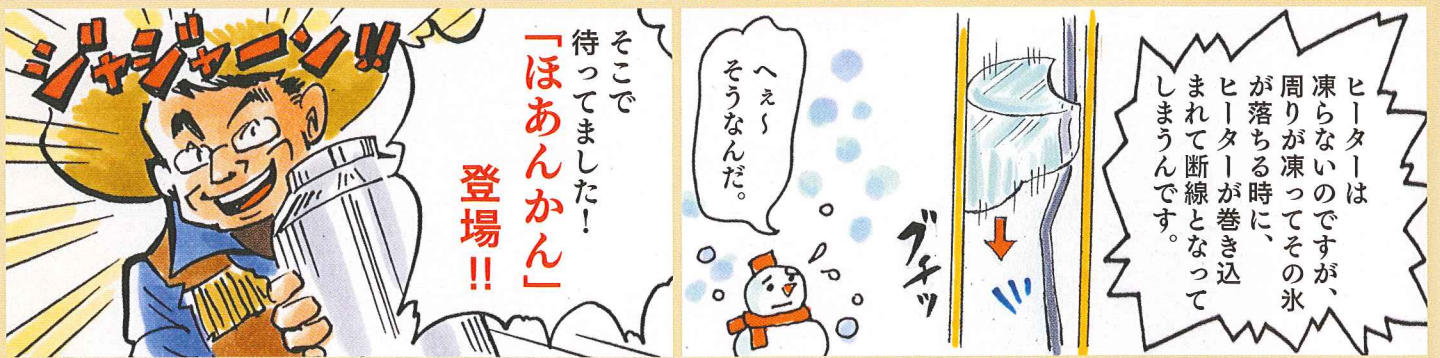 ヒーターは
凍らないのですが、
周りが凍ってその氷
が落ちる時に、
ヒーターが巻き込
まれて断線となって
しまうんです。
ブチッ
へぇ～
そうなんだ。
そこで
待ってました！
「ほあんかん」
登場!!
ジャジャーン!!